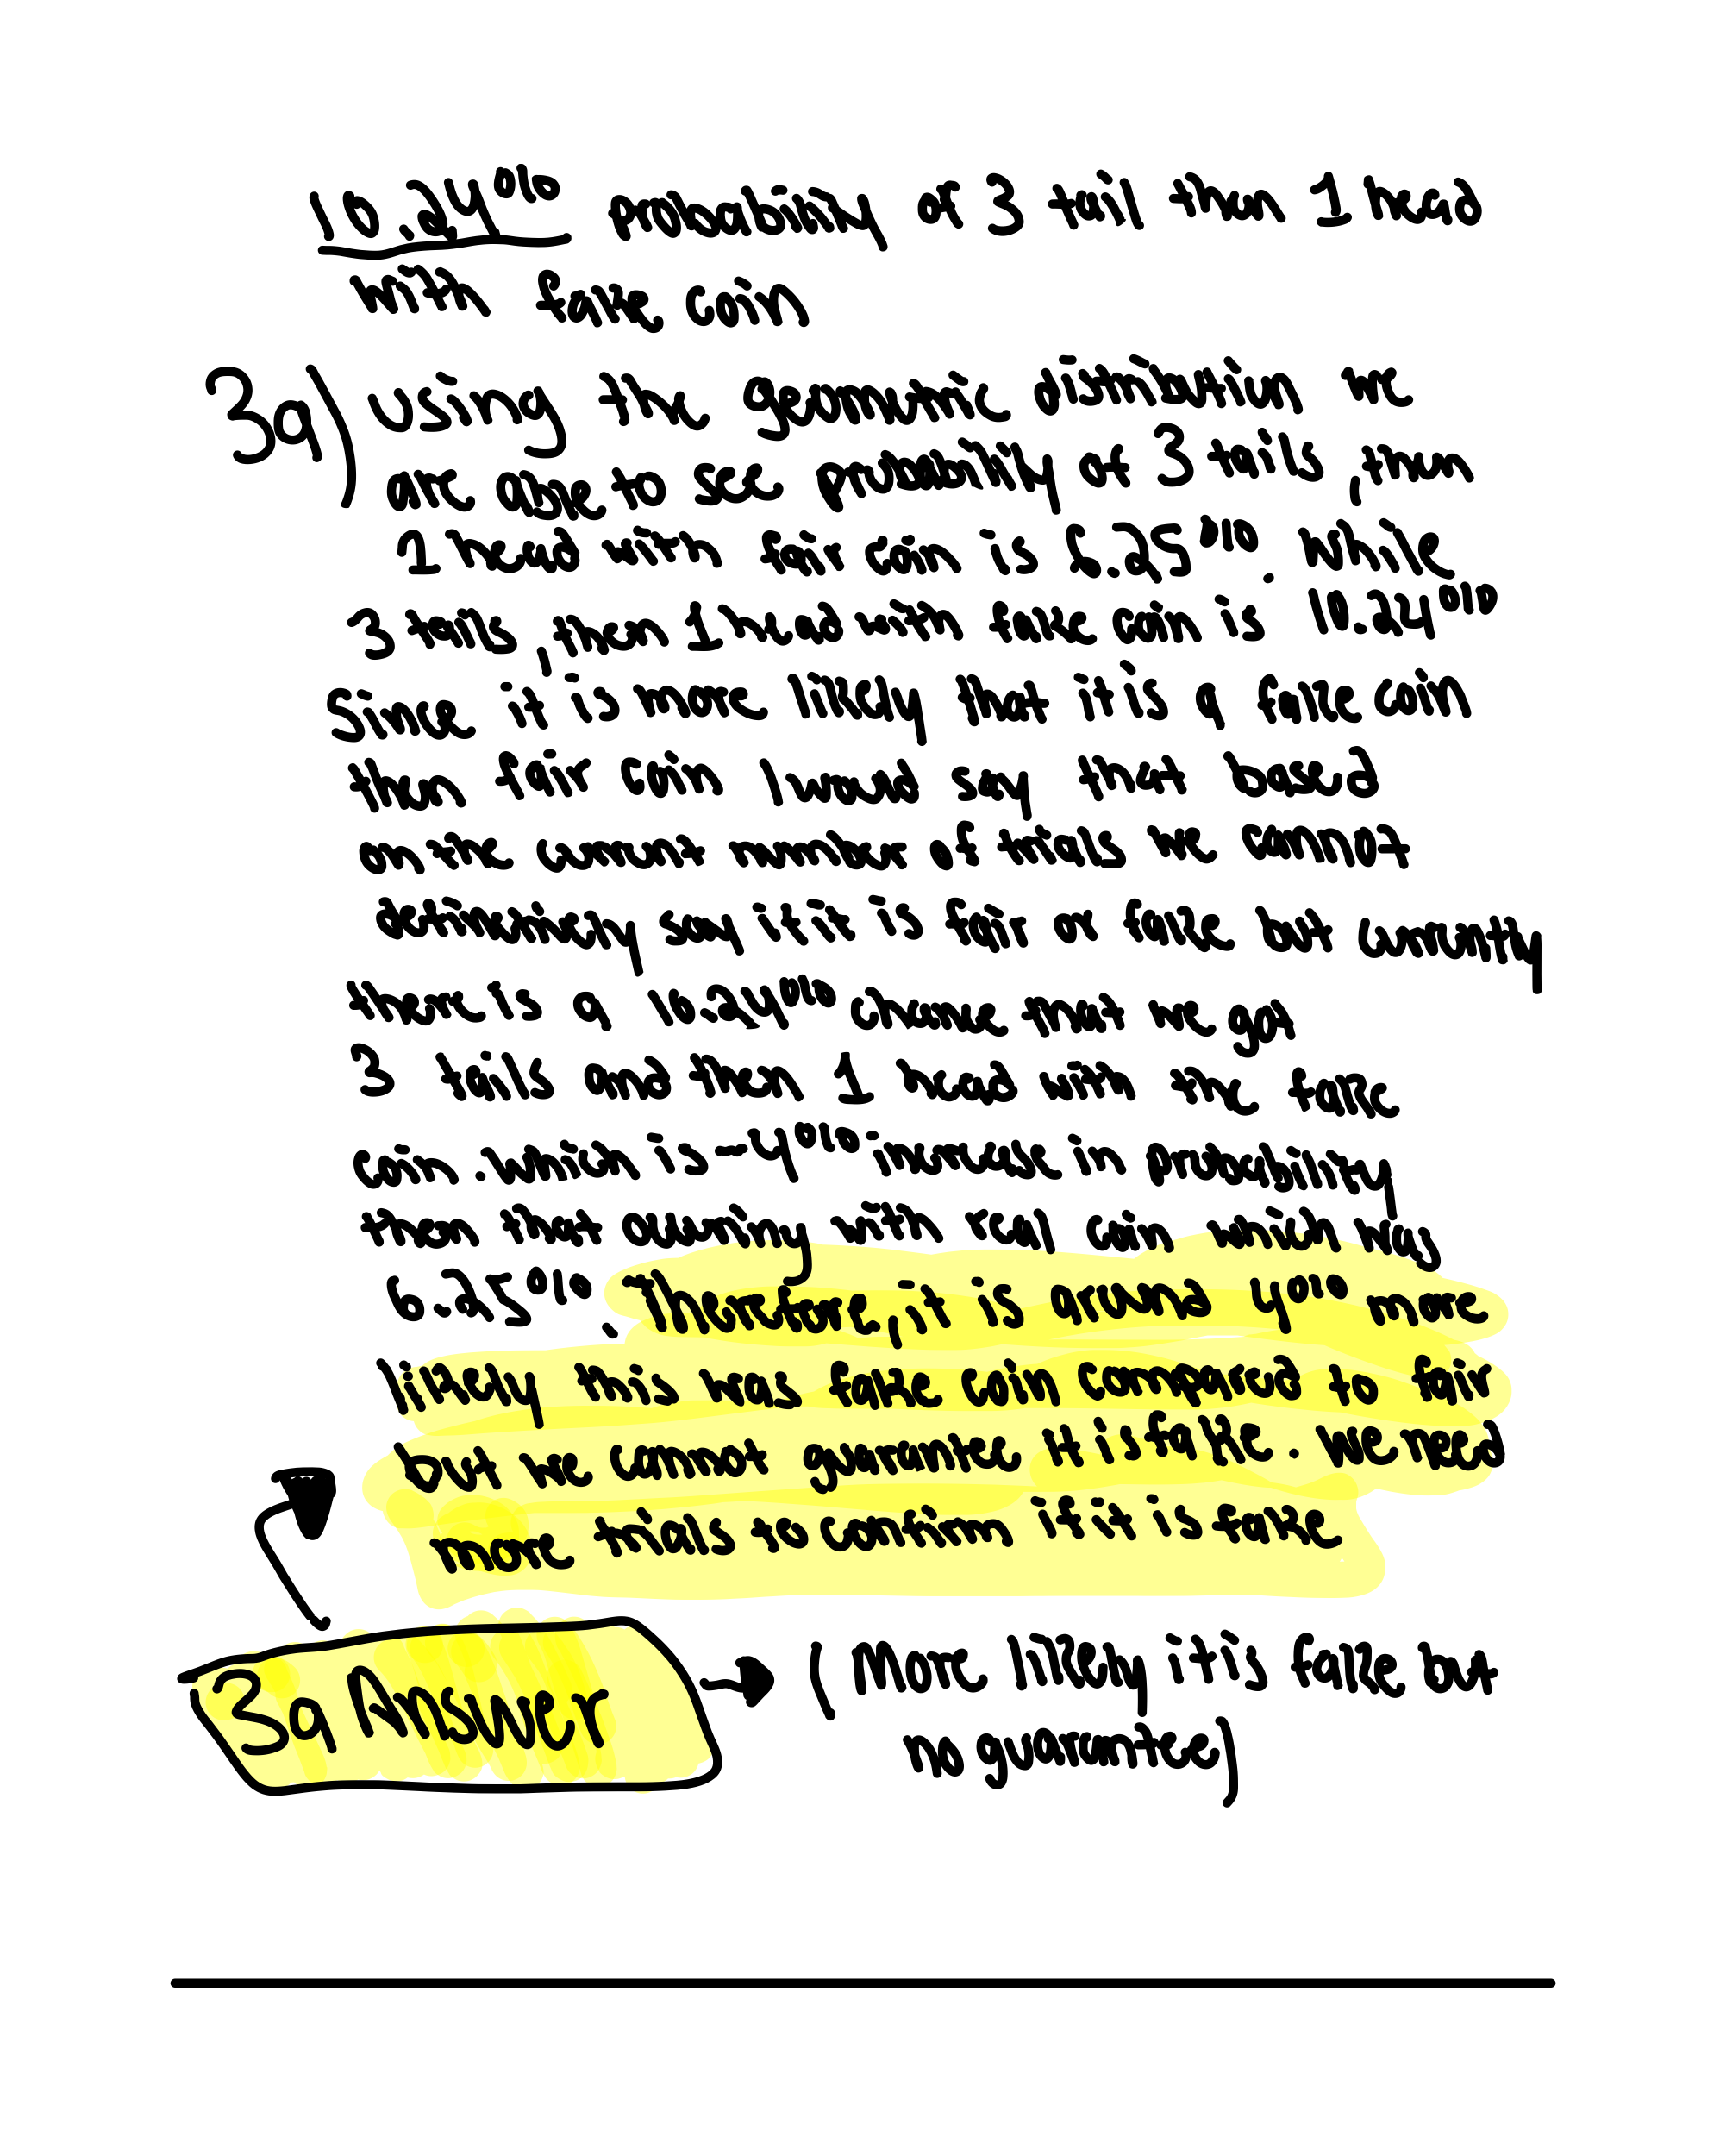 10.24% probability of 3 tail then 1 head
with fake coin
3a) Using the geometric distribution we
are able to see probability of 3 tails, then
1 head with fair coin is 6.25%. While
3 tails, then 1 head with fake coin is 10.24%
Since it is more likely that it is a fake coin
then fair coin I would say that based
on the current number of trials we cannot
definitively say if it is fair or fake but currently
there is a 10.24% chance that we got
3 tails and then 1 head with the fake
coin. Which is ~4% increase in probability
then that occuring with real coin which was
6.25%. Therefore, it is around 4% more
likely this was fake coin compared to fair
but we cannot guarantee it is fake. We need
more trials to confirm if it is fake
3a Answer → (More likely it is fake but
no guarantee)